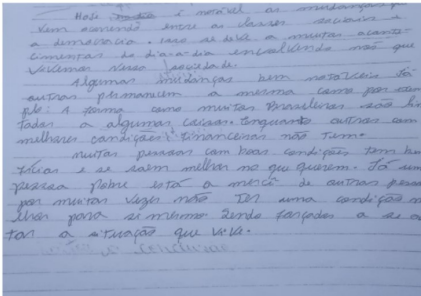 Hoje é notável as mudanças que
vem acontecendo entre as classes sociais e
a democracia. isso se deve a muitas aconte-
cimentos do dia a dia envolvendo nós que
vivemos nessa sociedade.
Algumas mudanças bem notaveis. Já
outras permanecem a mesma como por exem
plo: A forma como muitos Brasileiros são li
tados a algumas coisas. Enquanto outros com
melhores condições financeiras não tem.
muitas pessoas com boas condições tem
e se saem melhor no que querem. Já uma
pessoa pobre está a mercê de outras pessoas
por muitas vezes não Ter uma condição me
lhor para si mesmo sendo forçados a se a
tar a situação que vive.